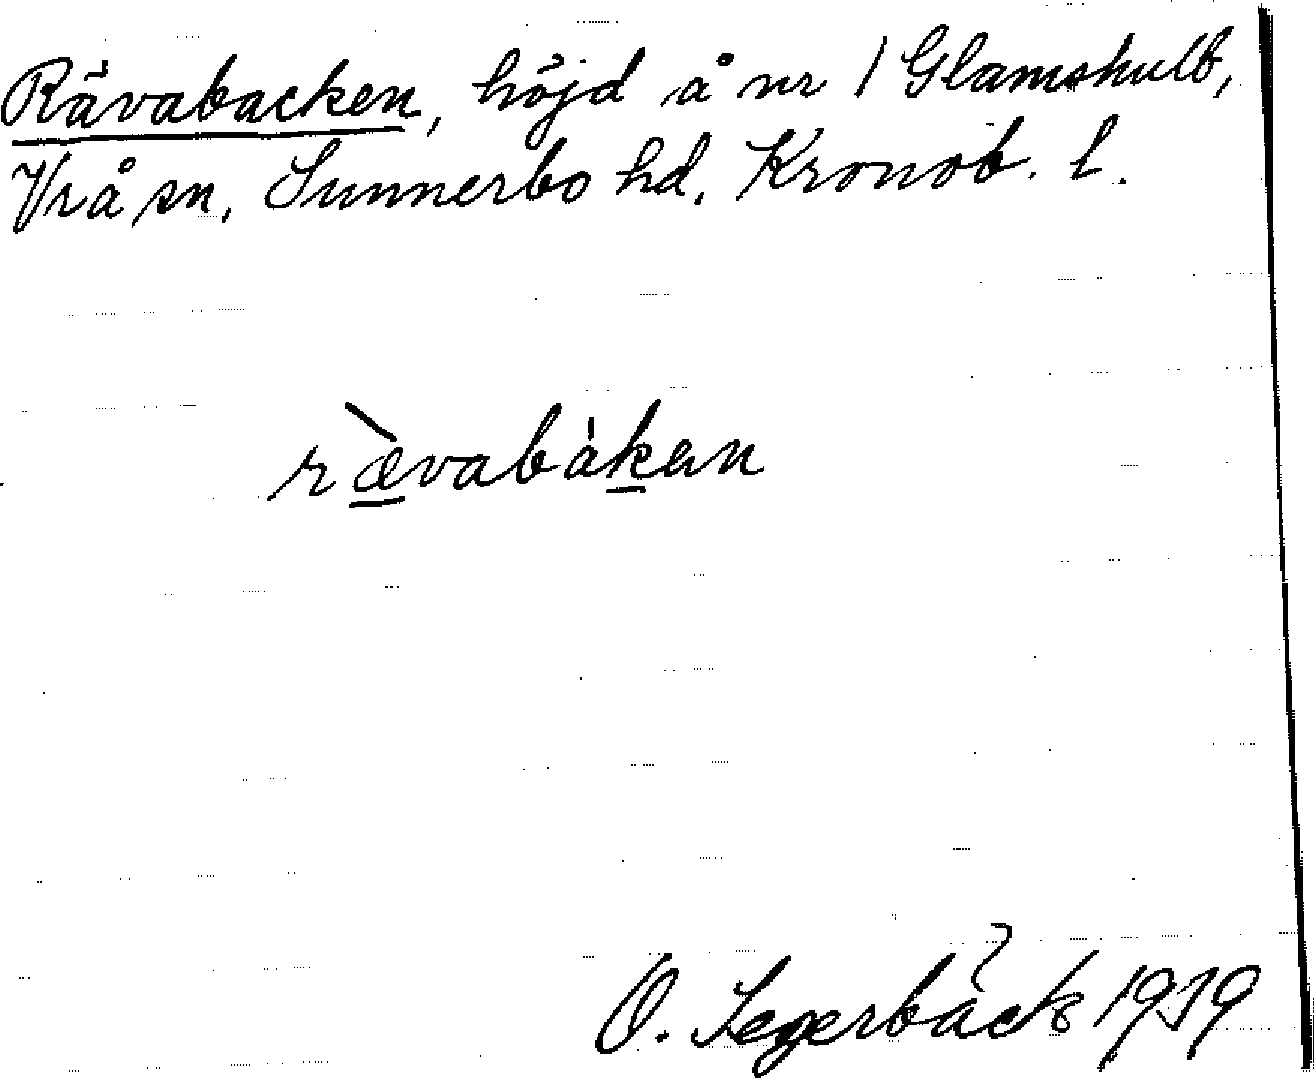 Rävabacken, höjd å nr 1 Glamshult,
Vrå sn, Sunnerbo hd, Kronob. l.
rævabàkan
O. Segerbäck 1919